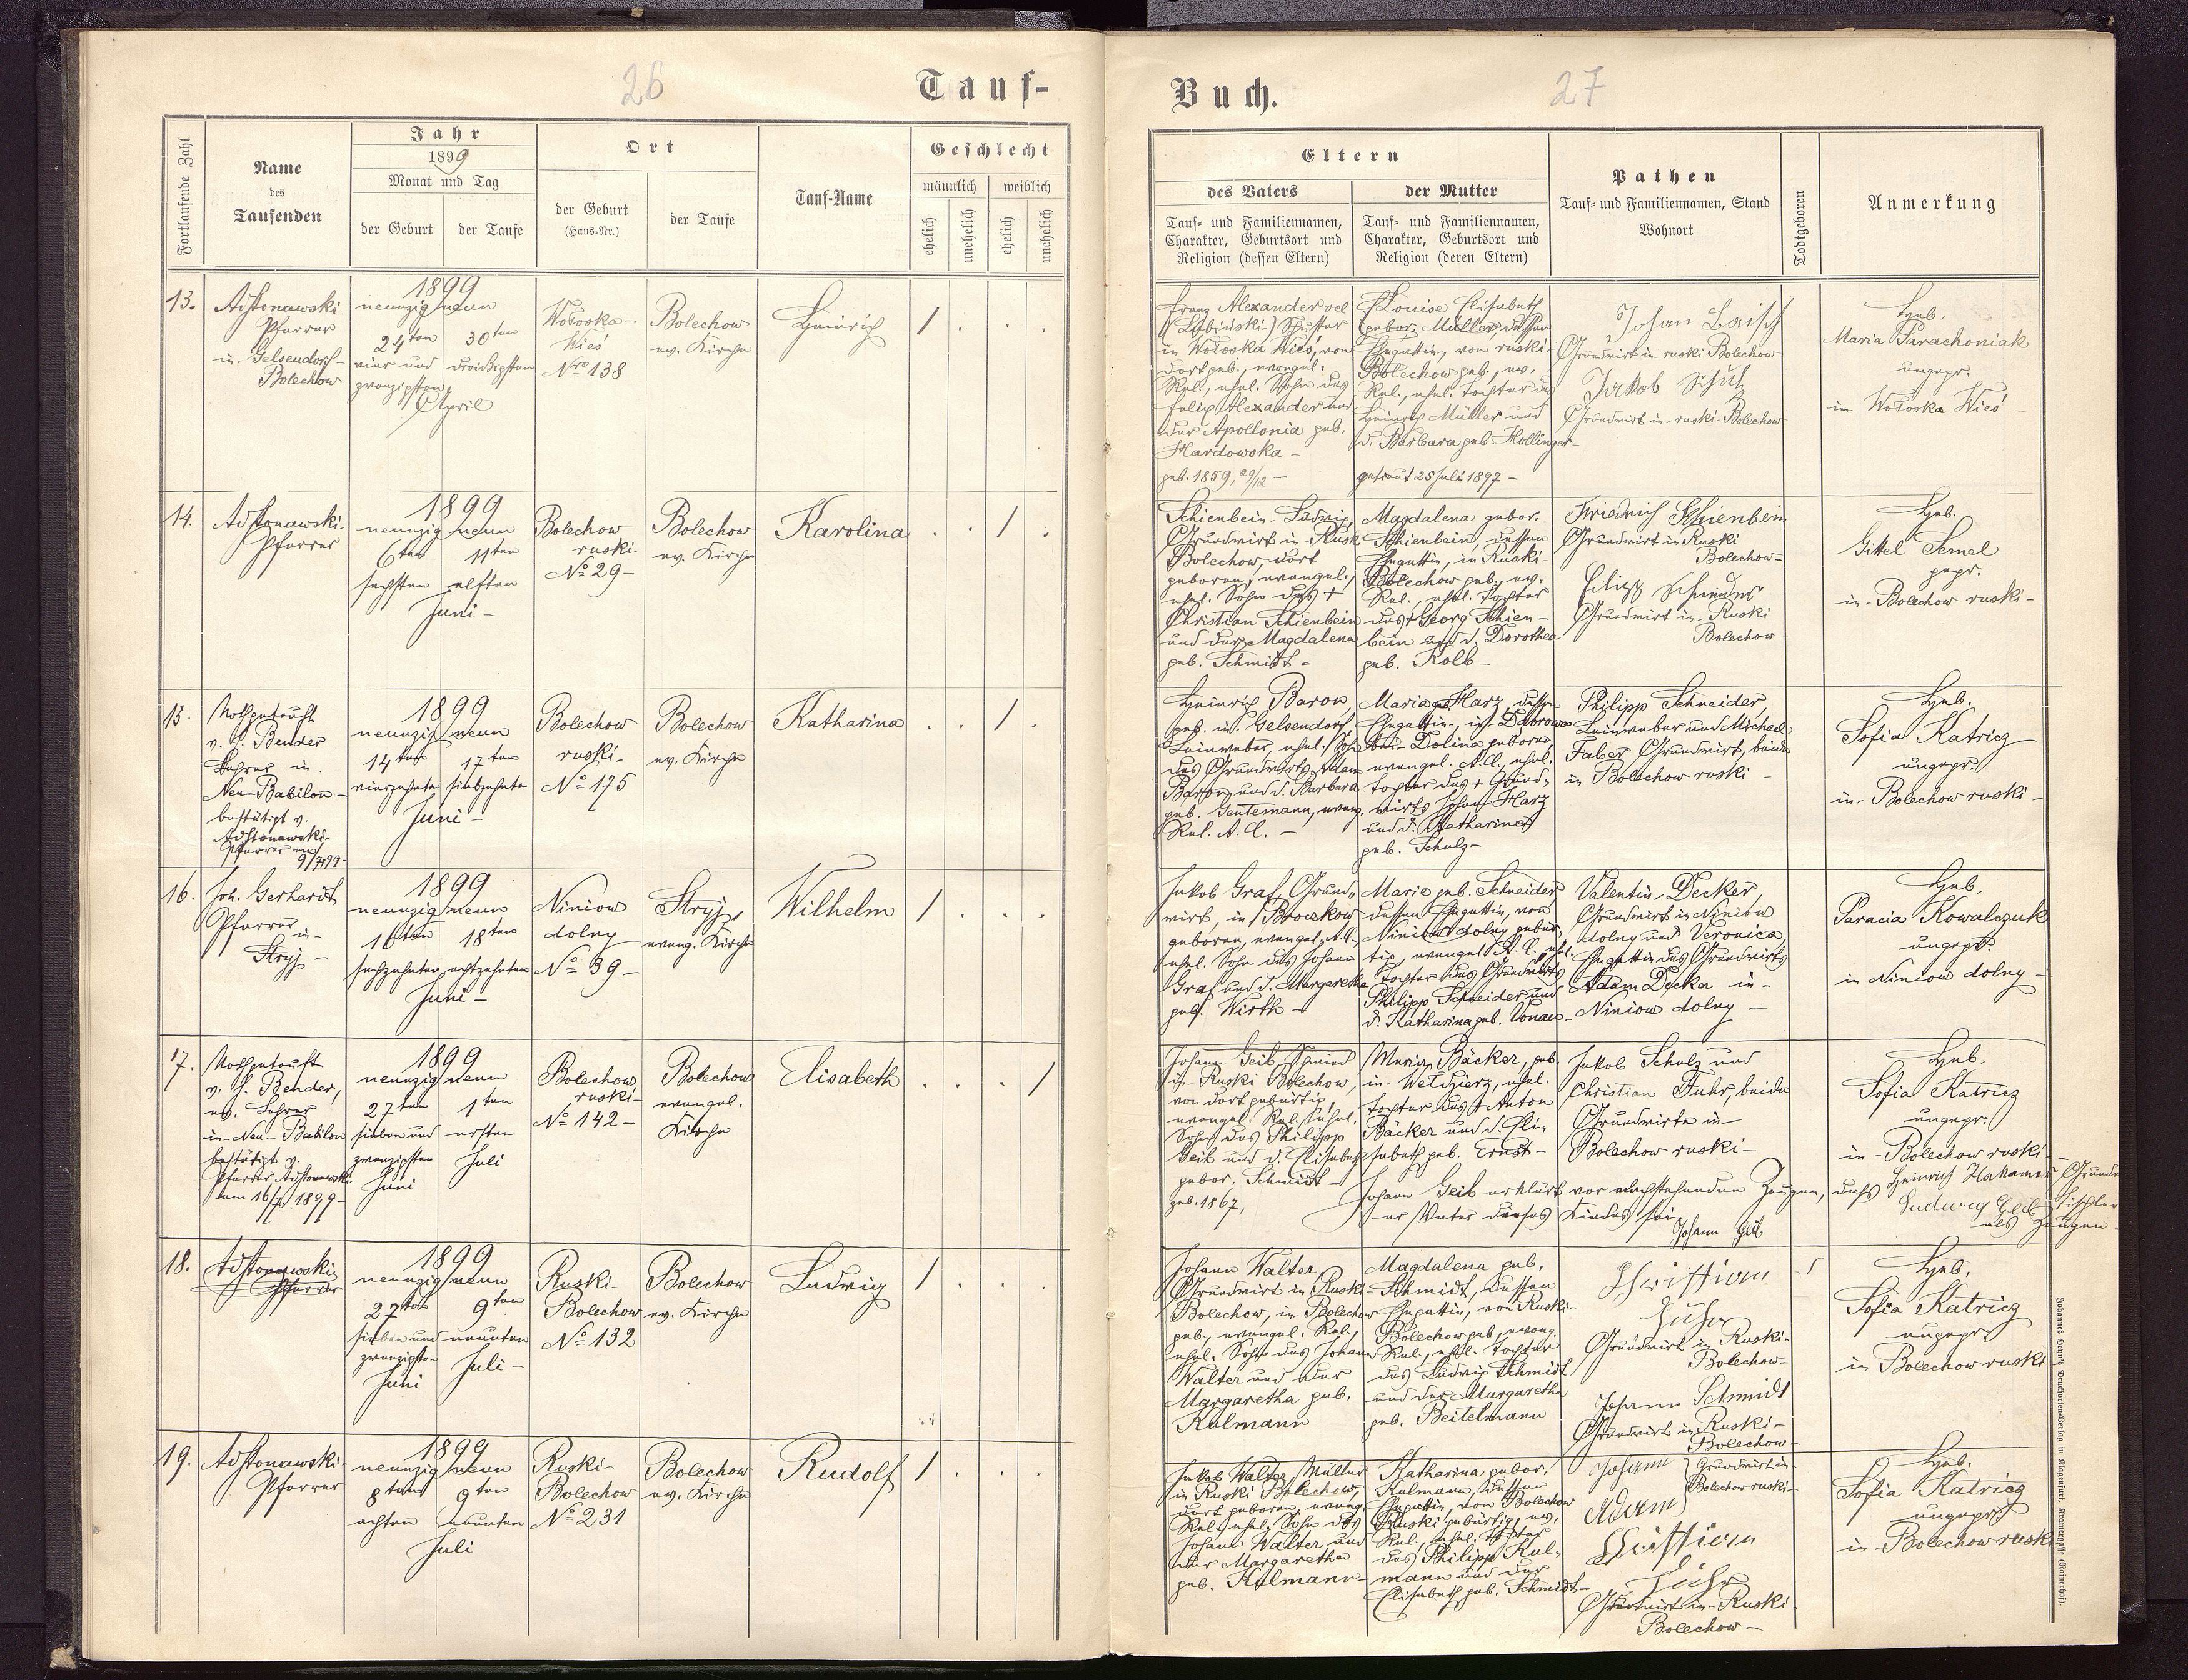 26
Tauf-
Fortlaufende Zahl
Name
des
Taufenden
Jahr
1899
Monat und Tag
der Geburt
der Taufe
Ort
der Geburt
(Haus-Nr.)
der Taufe
Tauf-Name
Geschlecht
männlich
weiblich
ehelich
unehelich
ehelich
unehelich
13.
Pfarrer
in Gelsendorf-
Bolechow
1899
neunzig neun
24ten
30ten
vier und
dreißigsten
zwanzigsten
April
Wołoska-
Wieś
Nro 138
Bolechow
ev. Kirche
Heinrich
1
14.
Pfarrer
1899
neunzig neun
6ten
11ten
sechsten
elften
Juni -
Bolechow
ruski-
No 29-
Bolechow
ev. Kirche
Karolina
1
15.
Nothgetauft
v. J. Bender
Lehrer in
Neu-Babilon-
bestätigt v.
Pfarrer am
9/7 99-
1899
neunzig neun
14ten
17ten
vierzehnten
siebzehnten
Juni -
Bolechow
ruski-
No 175
Bolechow
ev. Kirche
Katharina
1
16.
Joh. Gerhardt
Pfarrer
in
Stryj-
1899
neunzig neun
16ten
18ten
sechzehnten
achtzehnten
Juni -
Niniow
dolny
No 39-
Stryj,
evang. Kirche
Wilhelm
1
17.
Nothgetauft
v. J. Bender,
ev. Lehrer
in Neu-Babilon
bestätigt v.
Pfarrer
am 16/7 1899-
1899
neunzig neun
27ten
1ten
sieben und
ersten
zwanzigsten
Juni
Juli
Bolechow
ruski-
No 142-
Bolechow
evangel.
Kirche
Elisabeth
1
18.
Pfarrer
1899
neunzig neun
27ten
9ten
sieben und
neunten
zwanzigsten
Juni
Juli-
Ruski-
Bolechow
No 132
Bolechow
ev. Kirche
Ludwig
1
19.
Pfarrer
1899
neunzig neun
8ten
9ten
achten
neunten
Juli
Ruski-
Bolechow
No 231
Bolechow
ev. Kirche
Rudolf
1
Buch.
27
Eltern
des Vaters
Tauf- und Familiennamen,
Charakter, Geburtsort und
Religion (dessen Eltern)
der Mutter
Tauf- und Familiennamen,
Charakter, Geburtsort und
Religion (deren Eltern)
Pathen
Tauf- und Familiennamen, Stand
Wohnort
Todtgeboren
Anmerkung
Franz Alexander vel
Schuster
in Wołoska Wieś, von
dort geb., evangel.
Rel., ehel. Sohn des
Felix Alexander und
der Apollonia geb.
Hardowska -
geb. 1859, 29/12 -
Louise Elisabeth
gebor. Müller, dessen
Ehegattin, von ruski-
Bolechow geb., ev.
Rel., ehel. Tochter des
Heinrich Müller und
d. Barbara geb. Hollinger-
getraut 25 Juli 1897 -
Johan Laisch
Grundwirt in ruski Bolechow
Jakob Schulz
Grundwirt in ruski-Bolechow
Heb.
Maria Parachoniak
ungepr.
in Wołoska Wieś-
Schienbein Ludwig,
Grundwirt in Ruski
Bolechow, dort
geboren, evangel.,
ehel. Sohn des +
Christian Schienbein
und der Magdalena
geb. Schmidt-
Magdalena gebor.
Schienbein, dessen
Ehegattin, in Ruski-
Bolechow geb., ev.
Rel., ehel. Tochter
des + Georg Schien-
bein und d. Dorothea
geb. Kolb-
Friedrich Schienbein
Grundwirt in Ruski
Bolechow-
Grundwirt in Ruski
Bolechow-
Heb.
Gittel Semel
gepr.
in Bolechow ruski-
Heinrich Baron,
geb. in Gelsendorf,
Leinweber, ehel. Sohn
des Grundwirts Adam
Baron und d. Barbara
geb. Gentemann, evang.
Rel. A. C. -
Maria Harz, dessen
Ehegattin, in Dabrowa
bei Dolina geboren,
evangel. A.C., ehel.
Tochter des + Grund-
wirts Johann Harz
und d. Katharina
geb. Schulz-
Philipp Schneider,
Leinweber und Michael
Faber Grundwirt, beide
in Bolechow ruski-
Heb.
Sofia Katricz
ungepr.
in Bolechow ruski-
Jakob Graf, Grund-
wirt, in Broczkow
geboren, evangel. A.C.,
ehel. Sohn des Johann
Graf und d. Margaretha
geb. Wirth-
Marie geb. Schneider
dessen Ehegattin, von
Niniow dolny gebür-
tig, evangel. A.C., ehel.
Tochter des Grundwirts
Philipp Schneider und
d. Katharina geb. Vonau-
Valentin Decker,
Grundwirt in Niniow
dolny und Veronica,
Ehegattin des Grundwirts
Adam Decker in
Niniow dolny-
Heb.
Paracia Kowalczuk
ungepr.
in Niniow dolny-
Johann Geib, Schmied
in Ruski Bolechow,
von dort gebürtig,
evangel. Rel., ehel.
Sohn des Philipp
Geib und d. Elisabeth
gebor. Schmidt-
geb. 1867,
Maria Bäcker, geb.
in Wełdzierz, ehel.
Tochter des + Anton
Bäcker und d. Eli-
sabeth geb. Ernst-
Jakob Schulz und
Christian Fuhr, beide
Grundwirte in
Bolechow ruski-
Heb.
Sofia Katricz
ungepr.
in Bolechow ruski-
Johann Geib erklärt vor nachstehenden Zeugen, dass
er Vater dieses Kindes sei
Johann Geib
Heinrich
Ludwig Geib Tischler
als Zeugen-
Johann Walter
Grundwirt in Ruski-
Bolechow, in Bolechow
geb., evangel. Rel.,
ehel. Sohn des Johann
Walter und der
Margaretha geb.
Kulmann
Magdalena geb.
Schmidt, dessen
Ehegattin, von Ruski-
Bolechow geb., evang.
Rel., ehel. Tochter
des Ludwig Schmidt
und der Margaretha
geb. Beitelmann
Christian
Fuhr
Grundwirt in Ruski-
Bolechow-
Johann Schmidt
Grundwirt in Ruski-
Bolechow-
Heb.
Sofia Katricz
ungepr.
in Bolechow ruski
Jakob Walter, Müller
in Ruski Bolechow,
dort geboren, evang.
Rel., ehel. Sohn des
Johann Walter und
der Margaretha
geb. Kulmann-
Katharina gebor.
Kulmann, dessen
Ehegattin, von Bolechow
Ruski gebürtig, ev.
Rel., ehel. Tochter
des Philipp Kul-
mann und der
Elisabeth geb. Schmidt-
Johann
Adam
Grundwirt in
Bolechow ruski-
Christian
Fuhr
Grundwirt in Ruski
Bolechow-
Heb.
Sofia Katricz
ungepr.
in Bolechow ruski
Johannes Heyn's Drucksorten-Verlag in Klagenfurt, Kramergasse (Rainerhof).